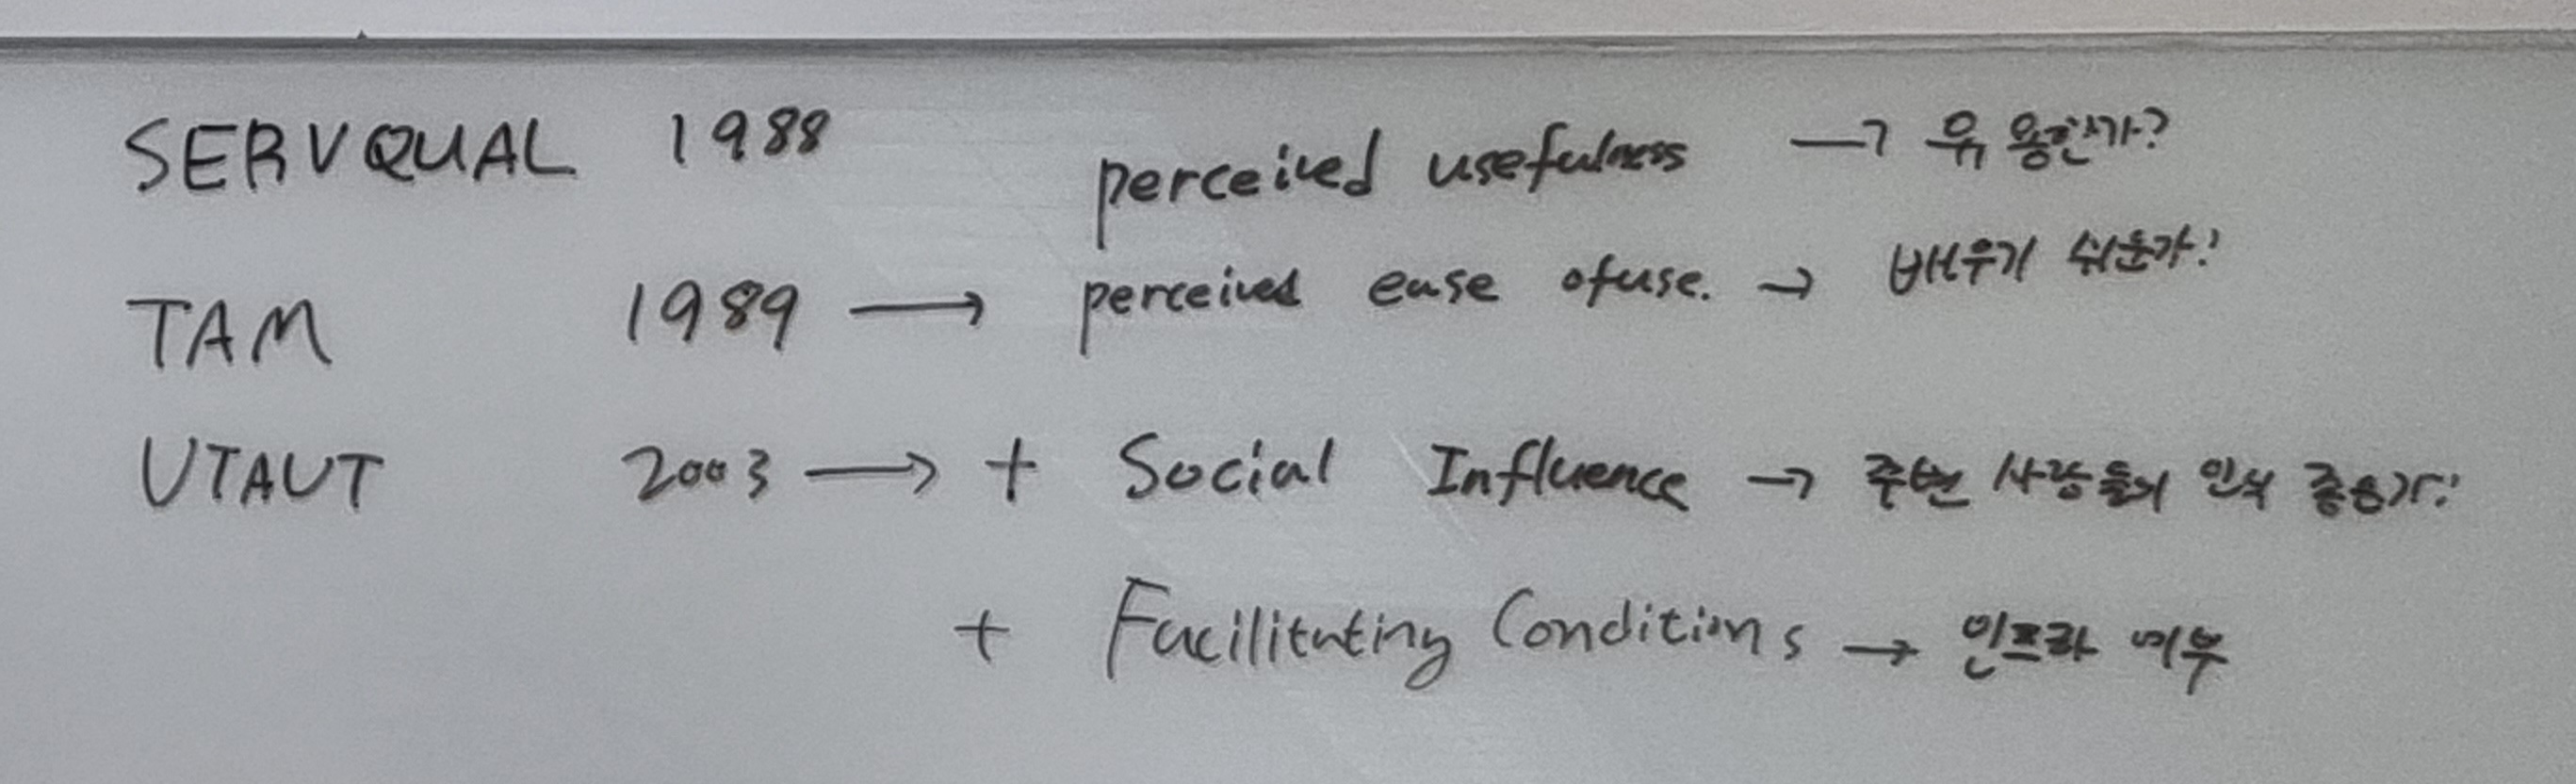 SERVQUAL 1988
perceived usefulness → 유용한가?
TAM 1989 → perceived ease of use. → 배우기 쉬운가?
UTAUT 2003 → + Social Influence → 주변 사람들의 인식 좋은가?
+ Facilitating Conditions → 인프라 여부